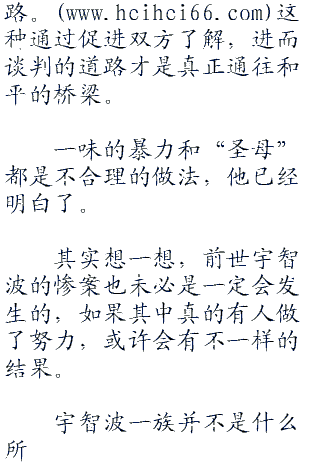 路。(www.hcihci66.com)这
种通过促进双方了解，进而
谈判的道路才是真正通往和
平的桥梁。
一味的暴力和“圣母”
都是不合理的做法，他已经
明白了。
其实想一想，前世宇智
波的惨案也未必是一定会发
生的，如果其中真的有人做
了努力，或许会有不一样的
结果。
宇智波一族并不是什么
所